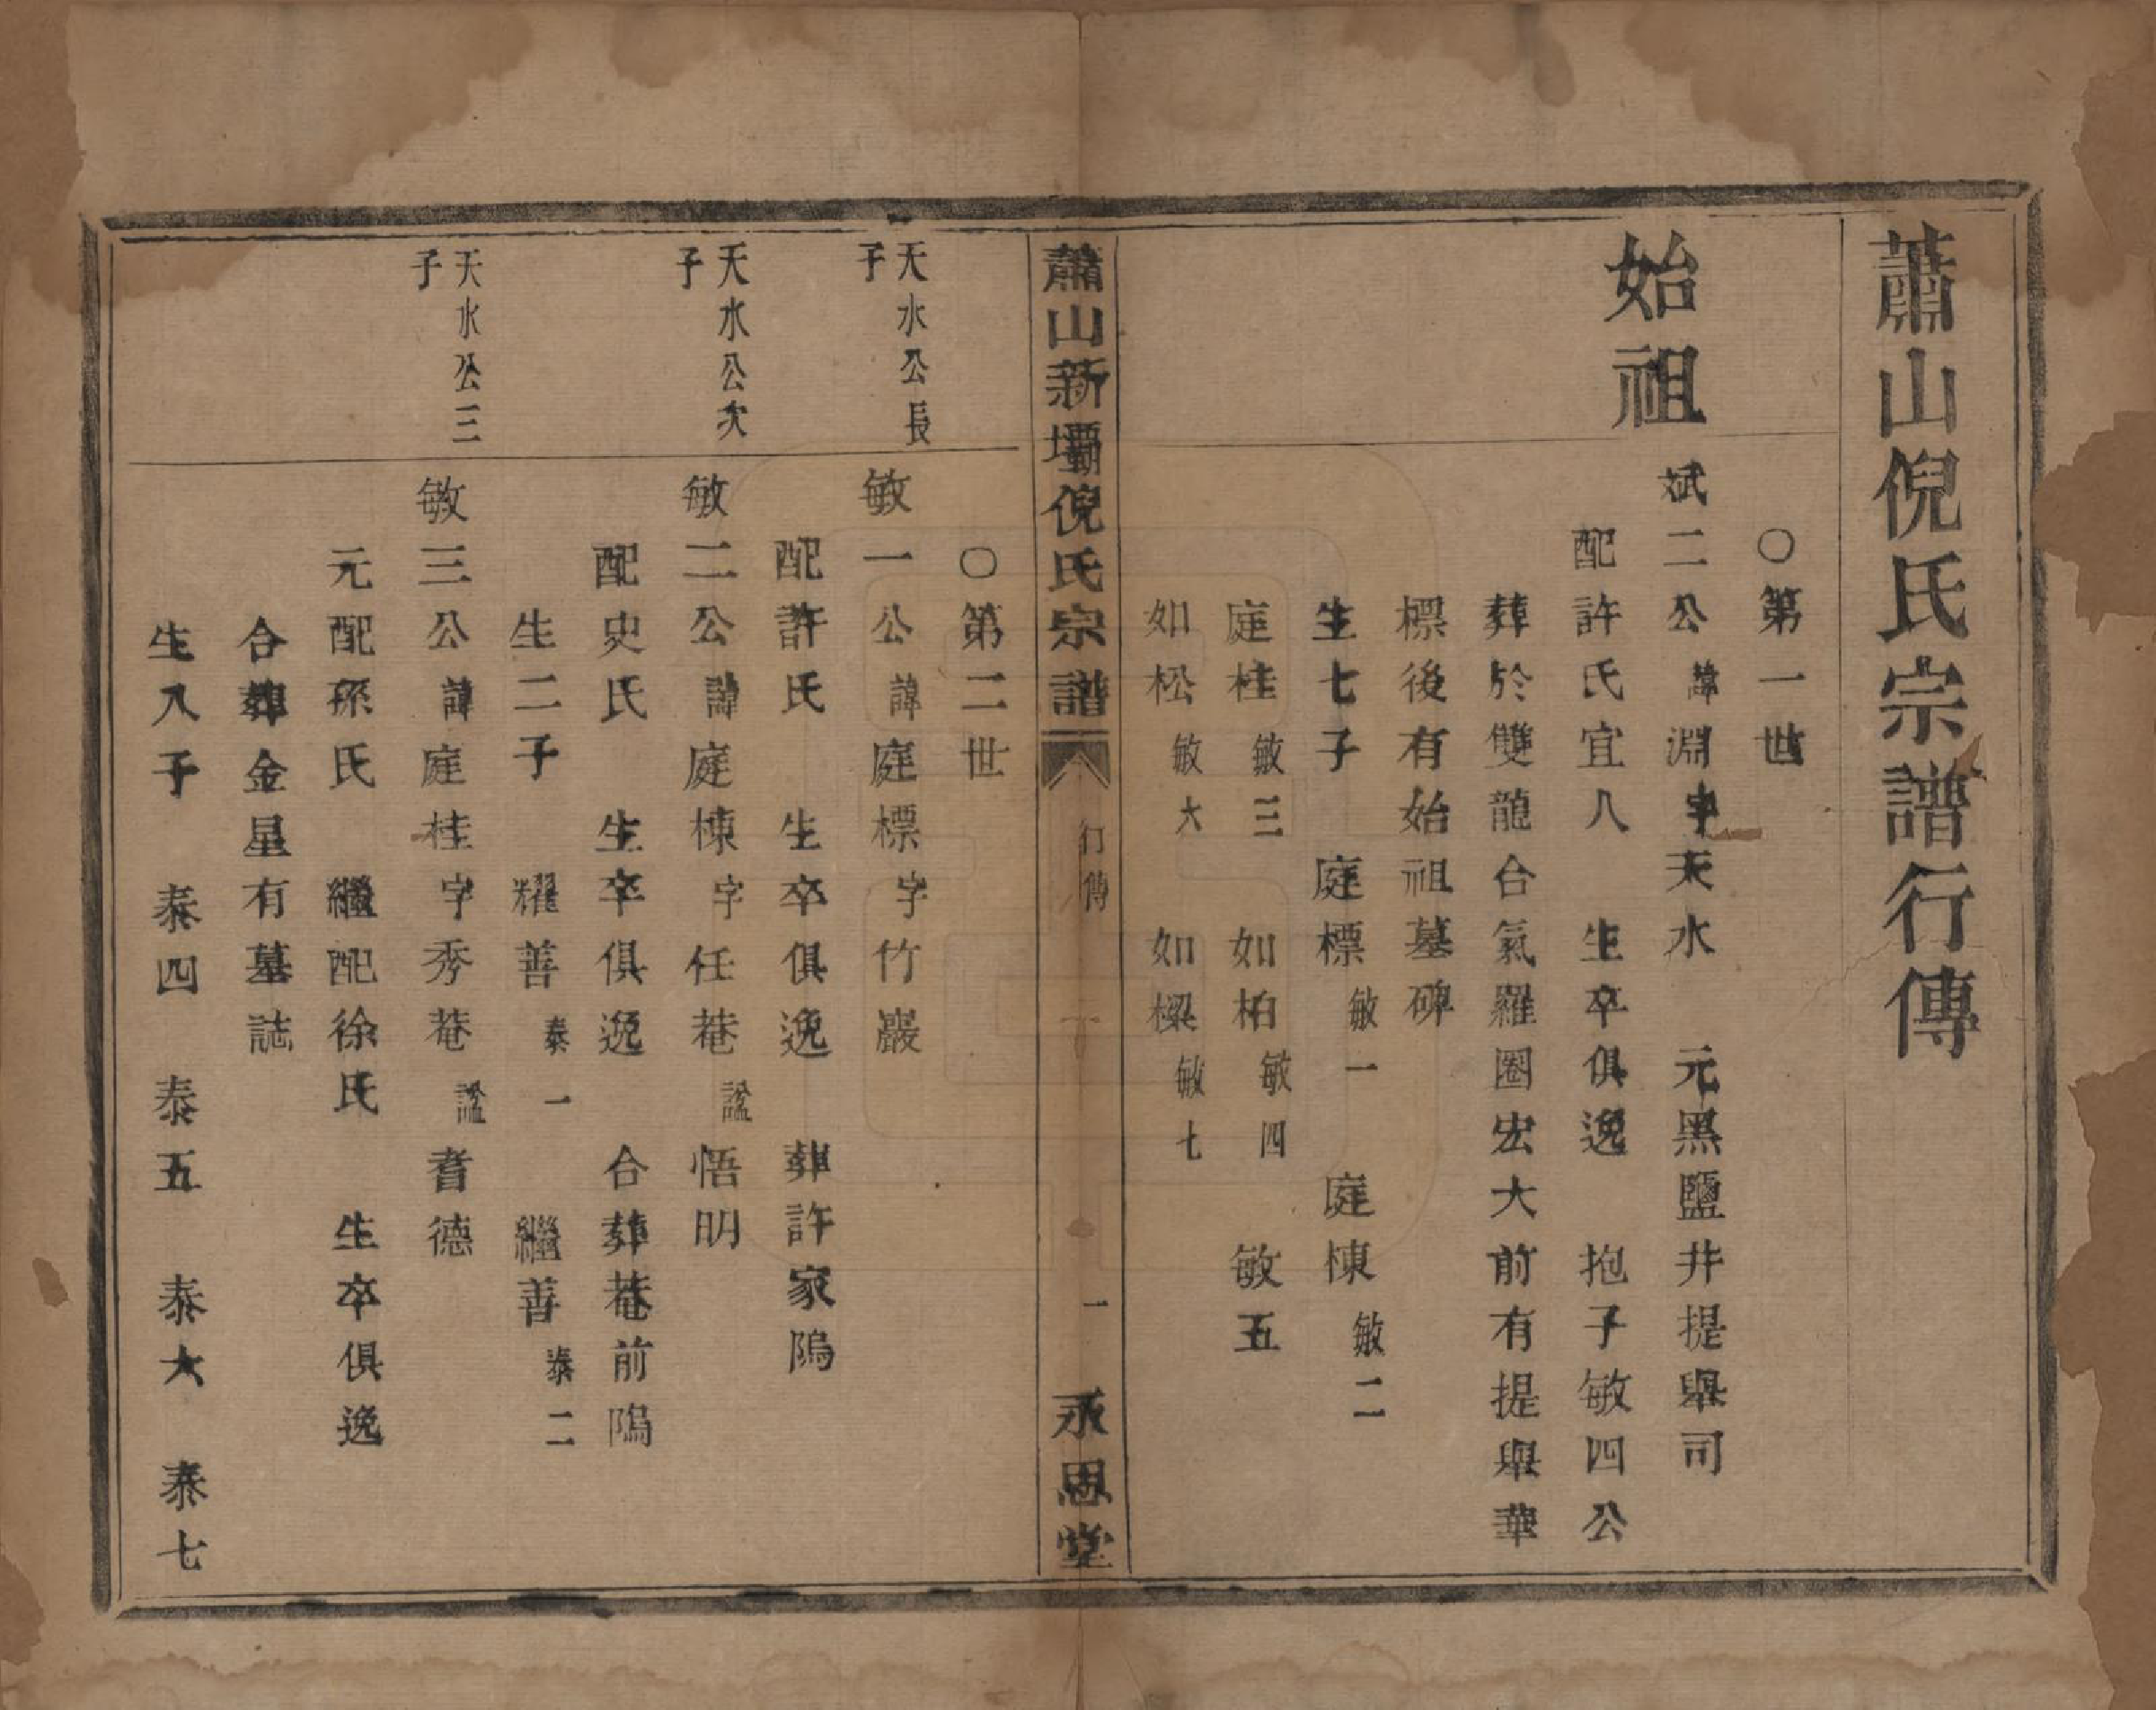 蕭山倪氏宗譜行傳
〇第一世
始祖
斌二公諱淵字天水　元黑鹽井提舉司
配許氏宜人　生卒俱逸　抱子敏四公
葬於雙龍合氣羅圈宏大前有提舉華
標後有始祖墓碑
生七子　庭標敏一　庭棟敏二
庭桂敏三　如柏敏四　敏五
如松敏六　如樑敏七
蕭山新壩倪氏宗譜　行傳　一　承恩堂
〇第二世
天水公長子
敏一公諱庭標字竹巖
配許氏　生卒俱逸　葬許家隝
天水公次子
敏二公諱庭棟字任菴諡悟明
配史氏　生卒俱逸　合葬菴前隝
生二子　耀善泰一　繼善泰二
天水公三子
敏三公諱庭桂字秀菴諡耆德
元配孫氏　繼配徐氏　生卒俱逸
合葬金星有墓誌
生八子　泰四　泰五　泰六　泰七